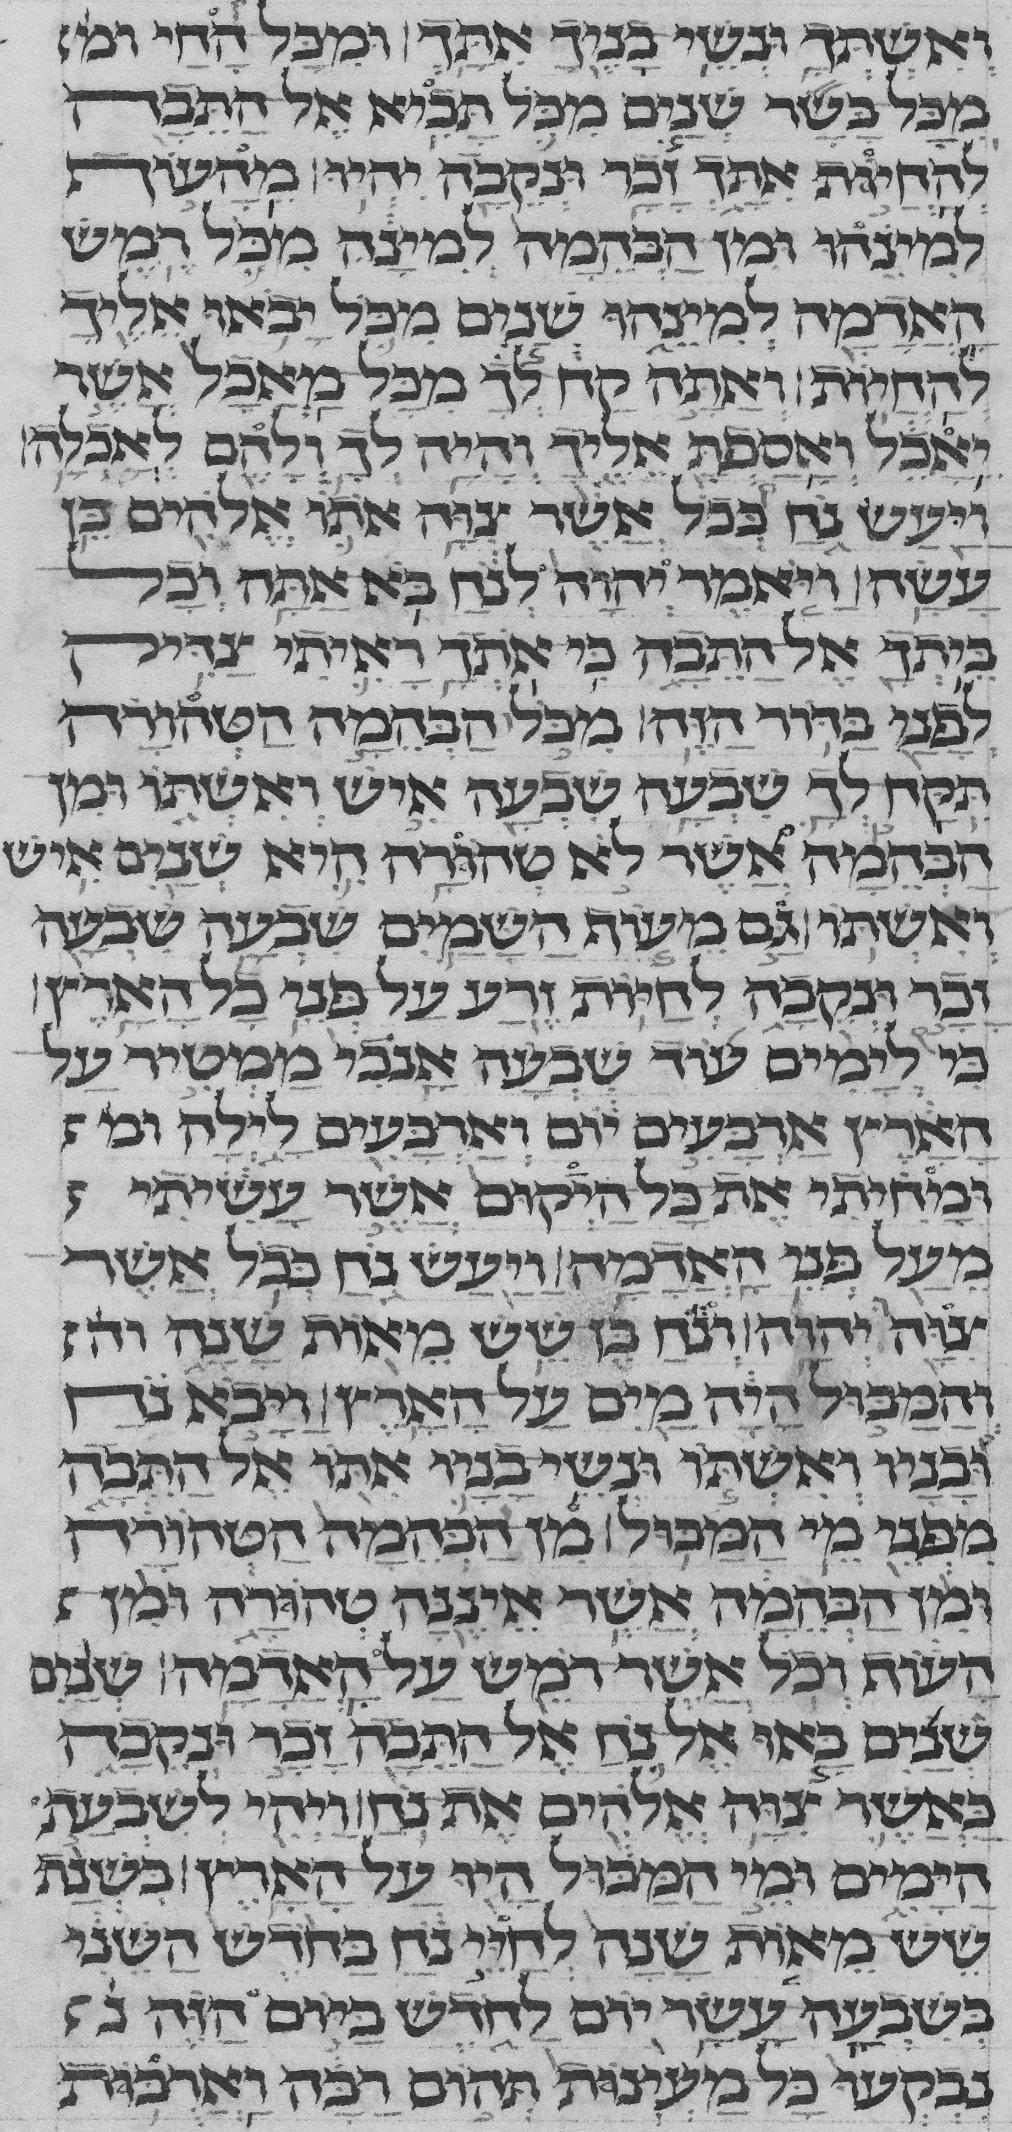 ואשתך ונשי בניך אתך ומכל החי ומ
מכל בשר שנים מכל תביא אל התבה
להחיות אתך זכר ונקבה יהיו מהעוף
למינהו ומן הבהמה למינה מכל רמש
האדמה למינהו שנים מכל יבאו אליך
להחיות ואתה קח לך מכל מאכל אשר
יאכל ואספת אליך והיה לך ולהם לאכלה
ויעש נח ככל אשר צוה אתו אלהים כן
עשה ויאמר יהוה לנח בא אתה וכל
ביתך אל התבה כי אתך ראיתי צדיק
לפני בדור הזה מכל הבהמה הטהורה
תקח לך שבעה שבעה איש ואשתו ומן
הבהמה אשר לא טהורה היא שנים איש
ואשתו גם מעוף השמים שבעה שבעה
זכר ונקבה לחיות זרע על פני כל הארץ
כי לימים עוד שבעה אנכי ממטיר על
הארץ ארבעים יום וארבעים לילה ומ
ומחיתי את כל היקום אשר עשיתי
מעל פני האדמה ויעש נח ככל אשר
צוה יהוה ונח בן שש מאות שנה וה
והמבול היה מים על הארץ ויבא נח
ובניו ואשתו ונשי בניו אתו אל התבה
מפני מי המבול מן הבהמה הטהורה
ומן הבהמה אשר איננה טהורה ומן
העוף וכל אשר רמש על האדמה שנים
שנים באו אל נח אל התבה זכר ונקבה
כאשר צוה אלהים את נח ויהי לשבעת
הימים ומי המבול היו על הארץ בשנת
שש מאות שנה לחיי נח בחדש השני
בשבעה עשר יום לחדש ביום הזה נ
נבקעו כל מעינות תהום רבה וארבות